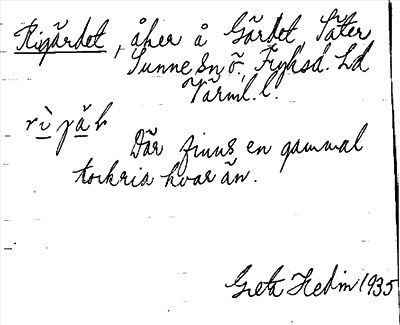 Rigärdet, åker å Gärdet, Säter
Sunne sn ö. Fryksd. hd
Värml. l.
Där finns en gammal
torkria kvar än.
Greta Hedin 1935